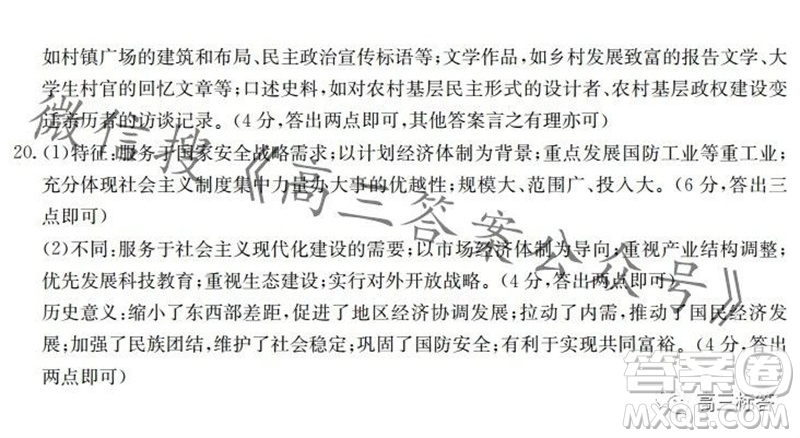 如村镇广场的建筑和布局、民主政治宣传标语等;文学作品,如乡村发展致富的报告文学、大
学生村官的回忆文章等;口述史料,如对农村基层民主形式的设计者、农村基层政权建设变
迁亲历者的访谈记录。(4分,答出两点即可,其他答案言之有理亦可)
20.(1)特征:服务于国家安全战略需求;以计划经济体制为背景;重点发展国防工业等重工业;
充分体现社会主义制度集中力量办大事的优越性;规模大、范围广、投入大。(6分,答出三
点即可)
(2)不同:服务于社会主义现代化建设的需要;以市场经济体制为导向;重视产业结构调整;
优先发展科技教育;重视生态建设;实行对外开放战略。(4分,答出两点即可)
历史意义:缩小了东西部差距,促进了地区经济协调发展;拉动了内需,推动了国民经济发
展;加强了民族团结,维护了社会稳定;巩固了国防安全;有利于实现共同富裕。(4分,答出
两点即可)
微信搜《高三答案公众号》
答案圈
高三标答
MXQE.COM